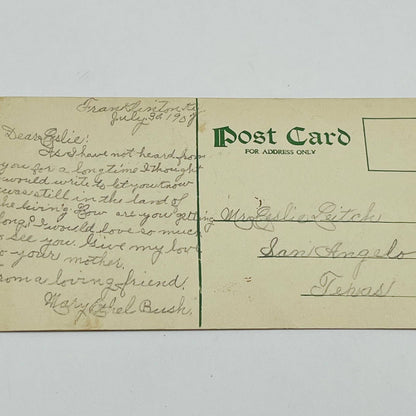 Franklinton, Ky.
July 30, 1907
Dear Eslie:
As I have not heard from
you for a long time I thought
would write to let you know
was still in the land of
the living. How are you getting
long? I would love so much
to see you. Give my love
to your mother.
From a loving friend,
Mary Ethel Bush.
Post Card
FOR ADDRESS ONLY
Mr. Eslie Leitch
San Angelo
Texas